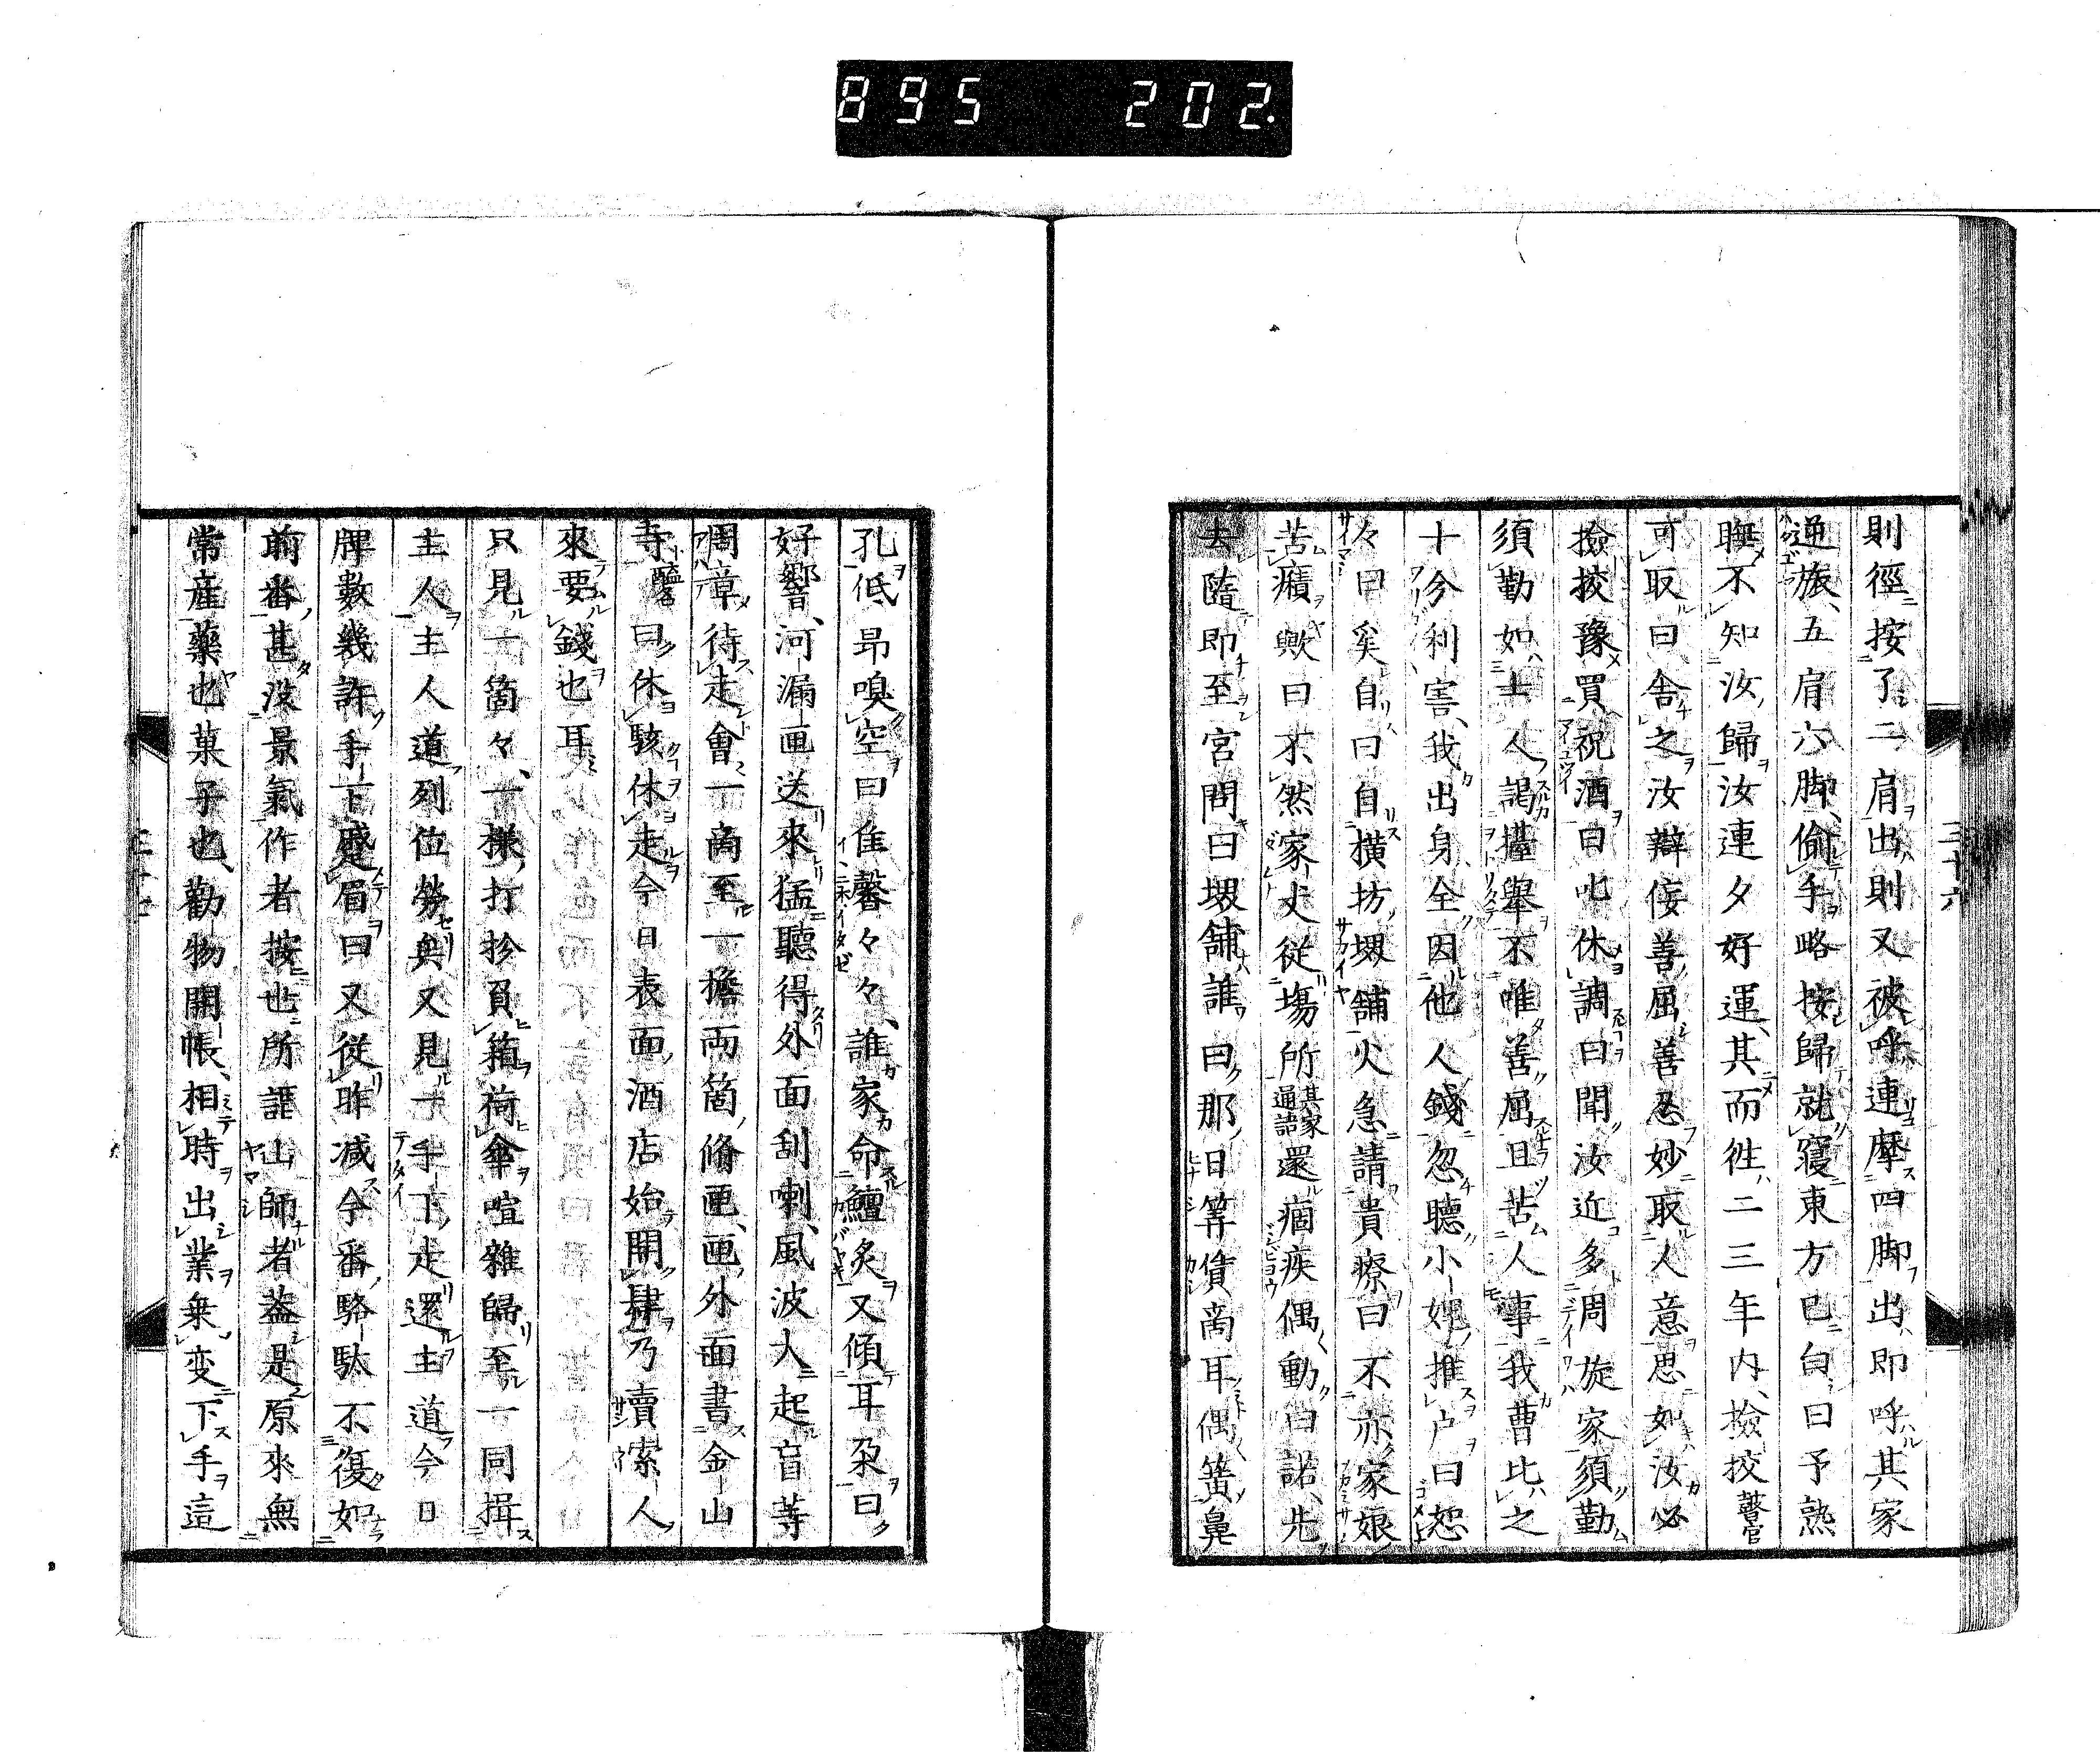 895 202.
三十六
則徑按了二肩出則又被呼連摩四脚出即呼其家
通旅、五肩六脚、偷手略按歸就寢東方已白曰予熟
聰不知汝歸汝連夕好運、其而往二三年内、撿挍瞽官
可取曰舍之汝辯佞善屈善忍妙取人意思如汝必
撿挍豫買祝酒曰叱休調曰聞汝近多周旋家須勤
須勤如士人謁擡舉不唯善屈且苦人事我曹比之
十分利害、我出身全因他人錢忽聽小娌推户曰恕
々曰矣自曰自橫坊堺舖火急請貴療曰不亦家娘
苦癪歟曰不然家丈從塲所其家通語還痼疾偶動曰諾、先
去隨即至宮問曰堺舖誰曰那日筭債离耳偶簧鼻
孔低昂嗅空曰隹馨々々、誰家命鱣炙又傾耳朶曰
好響、河漏匣送來猛聽得外面刮喇、風波大起盲等
周章待走會一离至一擔両箇脩匣、匣外面書金山
寺醯名曰休駭休走今日表面酒店始開肆乃賣索人
來要錢也耳
只見一箇々、一樣打扮負箱荷傘喧雜歸至一同揖
主人主人道列位勞矣又見一手下走還主道今日
牌數幾許手下蹙眉曰又從昨减今番駱駄不復如
前番甚沒景氣作者按也所謂山師者盖是原來無
常産藥也菓子也、勸物開帳、相時出業乗变下手這
三十七